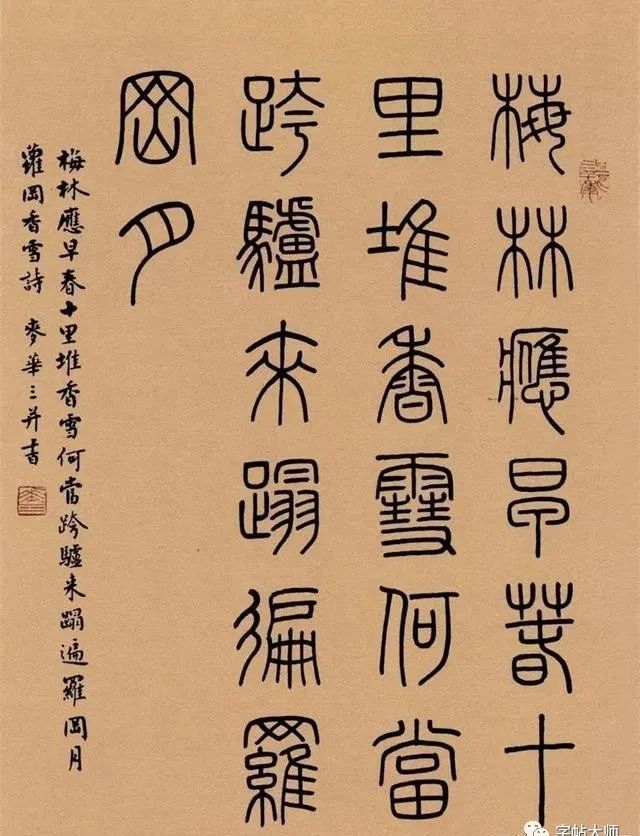 梅林應早春十
里堆香雪何當
跨驢來蹋徧羅
岡月
梅林應早春十里堆香雪何當跨驢来蹋遍羅岡月
蘿岡香雪詩 麥華三并書
字帖大师